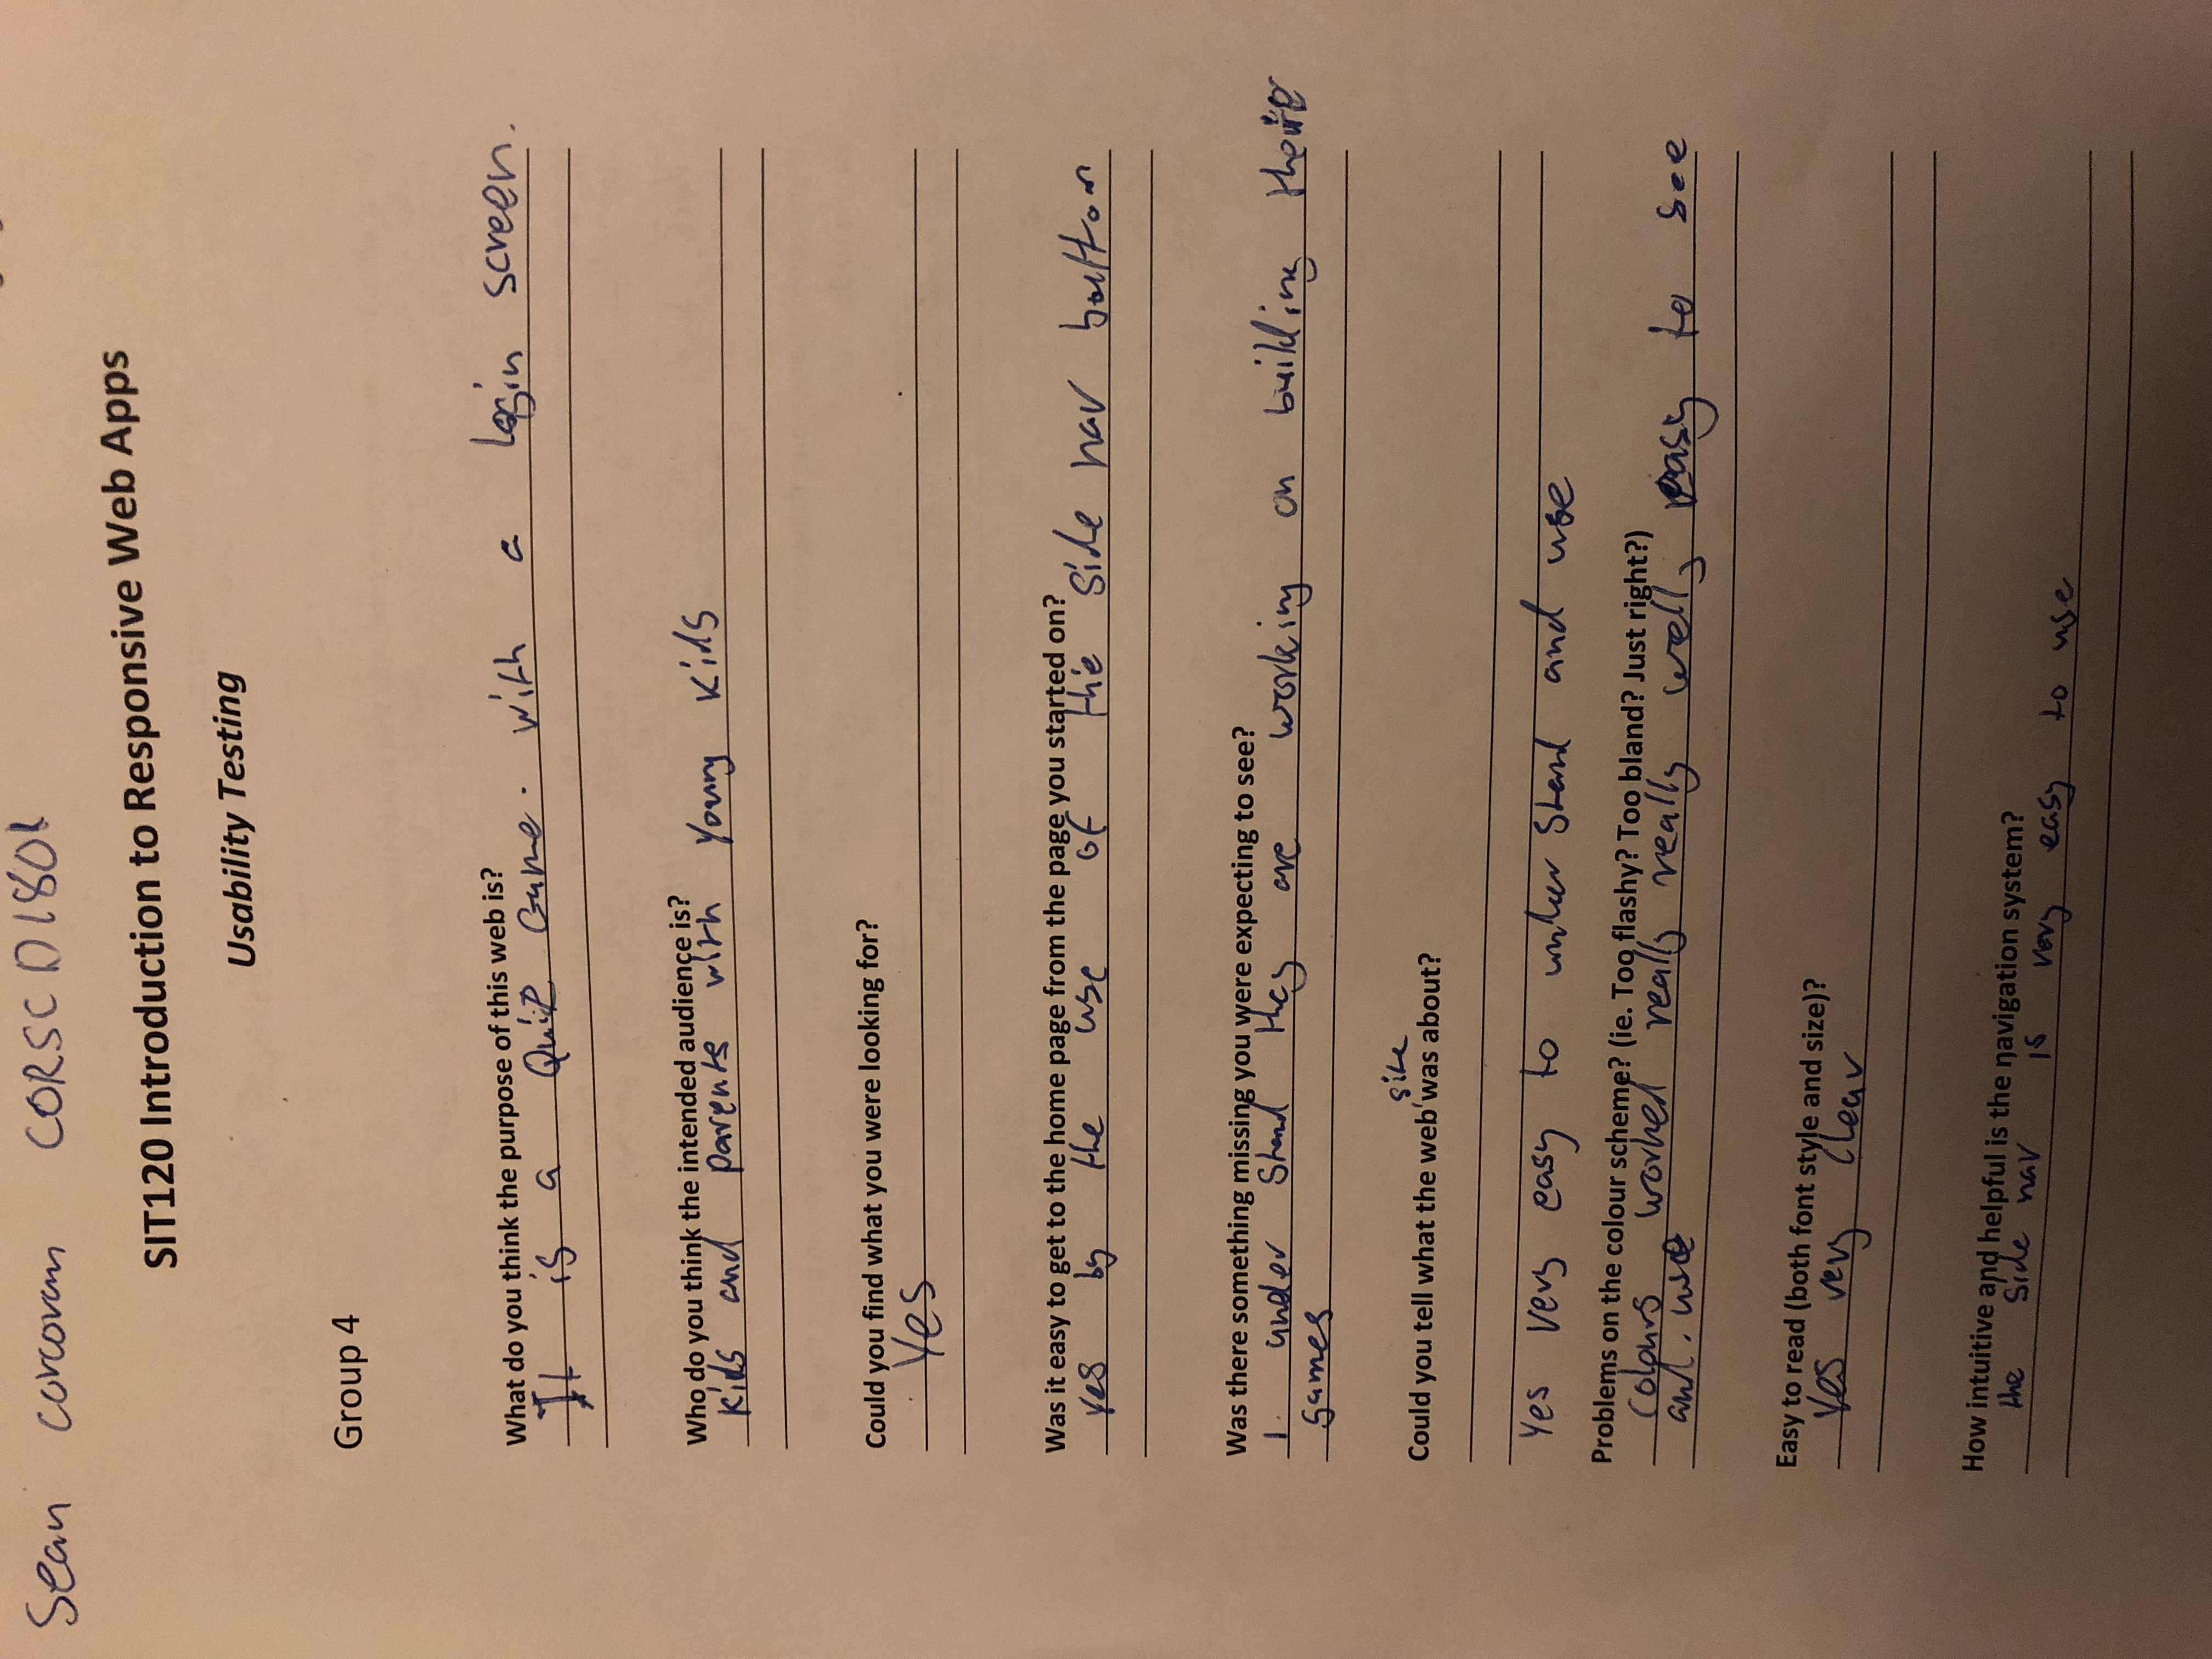 Sean corcoran CORSCD1801
SIT120 Introduction to Responsive Web Apps
Usability Testing
Group 4
What do you think the purpose of this web is?
It is a Quiz Game. with a login screen.
Who do you think the intended audience is?
Kids and parents with young kids
Could you find what you were looking for?
Yes
Was it easy to get to the home page from the page you started on?
yes by the use of the side nav buttom
Was there something missing you were expecting to see?
I. under Stand they are working on building their
games
site
Could you tell what the web was about?
Yes very easy to under Stand and use
Problems on the colour scheme? (ie. Too flashy? Too bland? Just right?)
colours worked really really well, easy to see
and. use
Easy to read (both font style and size)?
Yes very clear
How intuitive and helpful is the navigation system?
the side nav is very easy to use